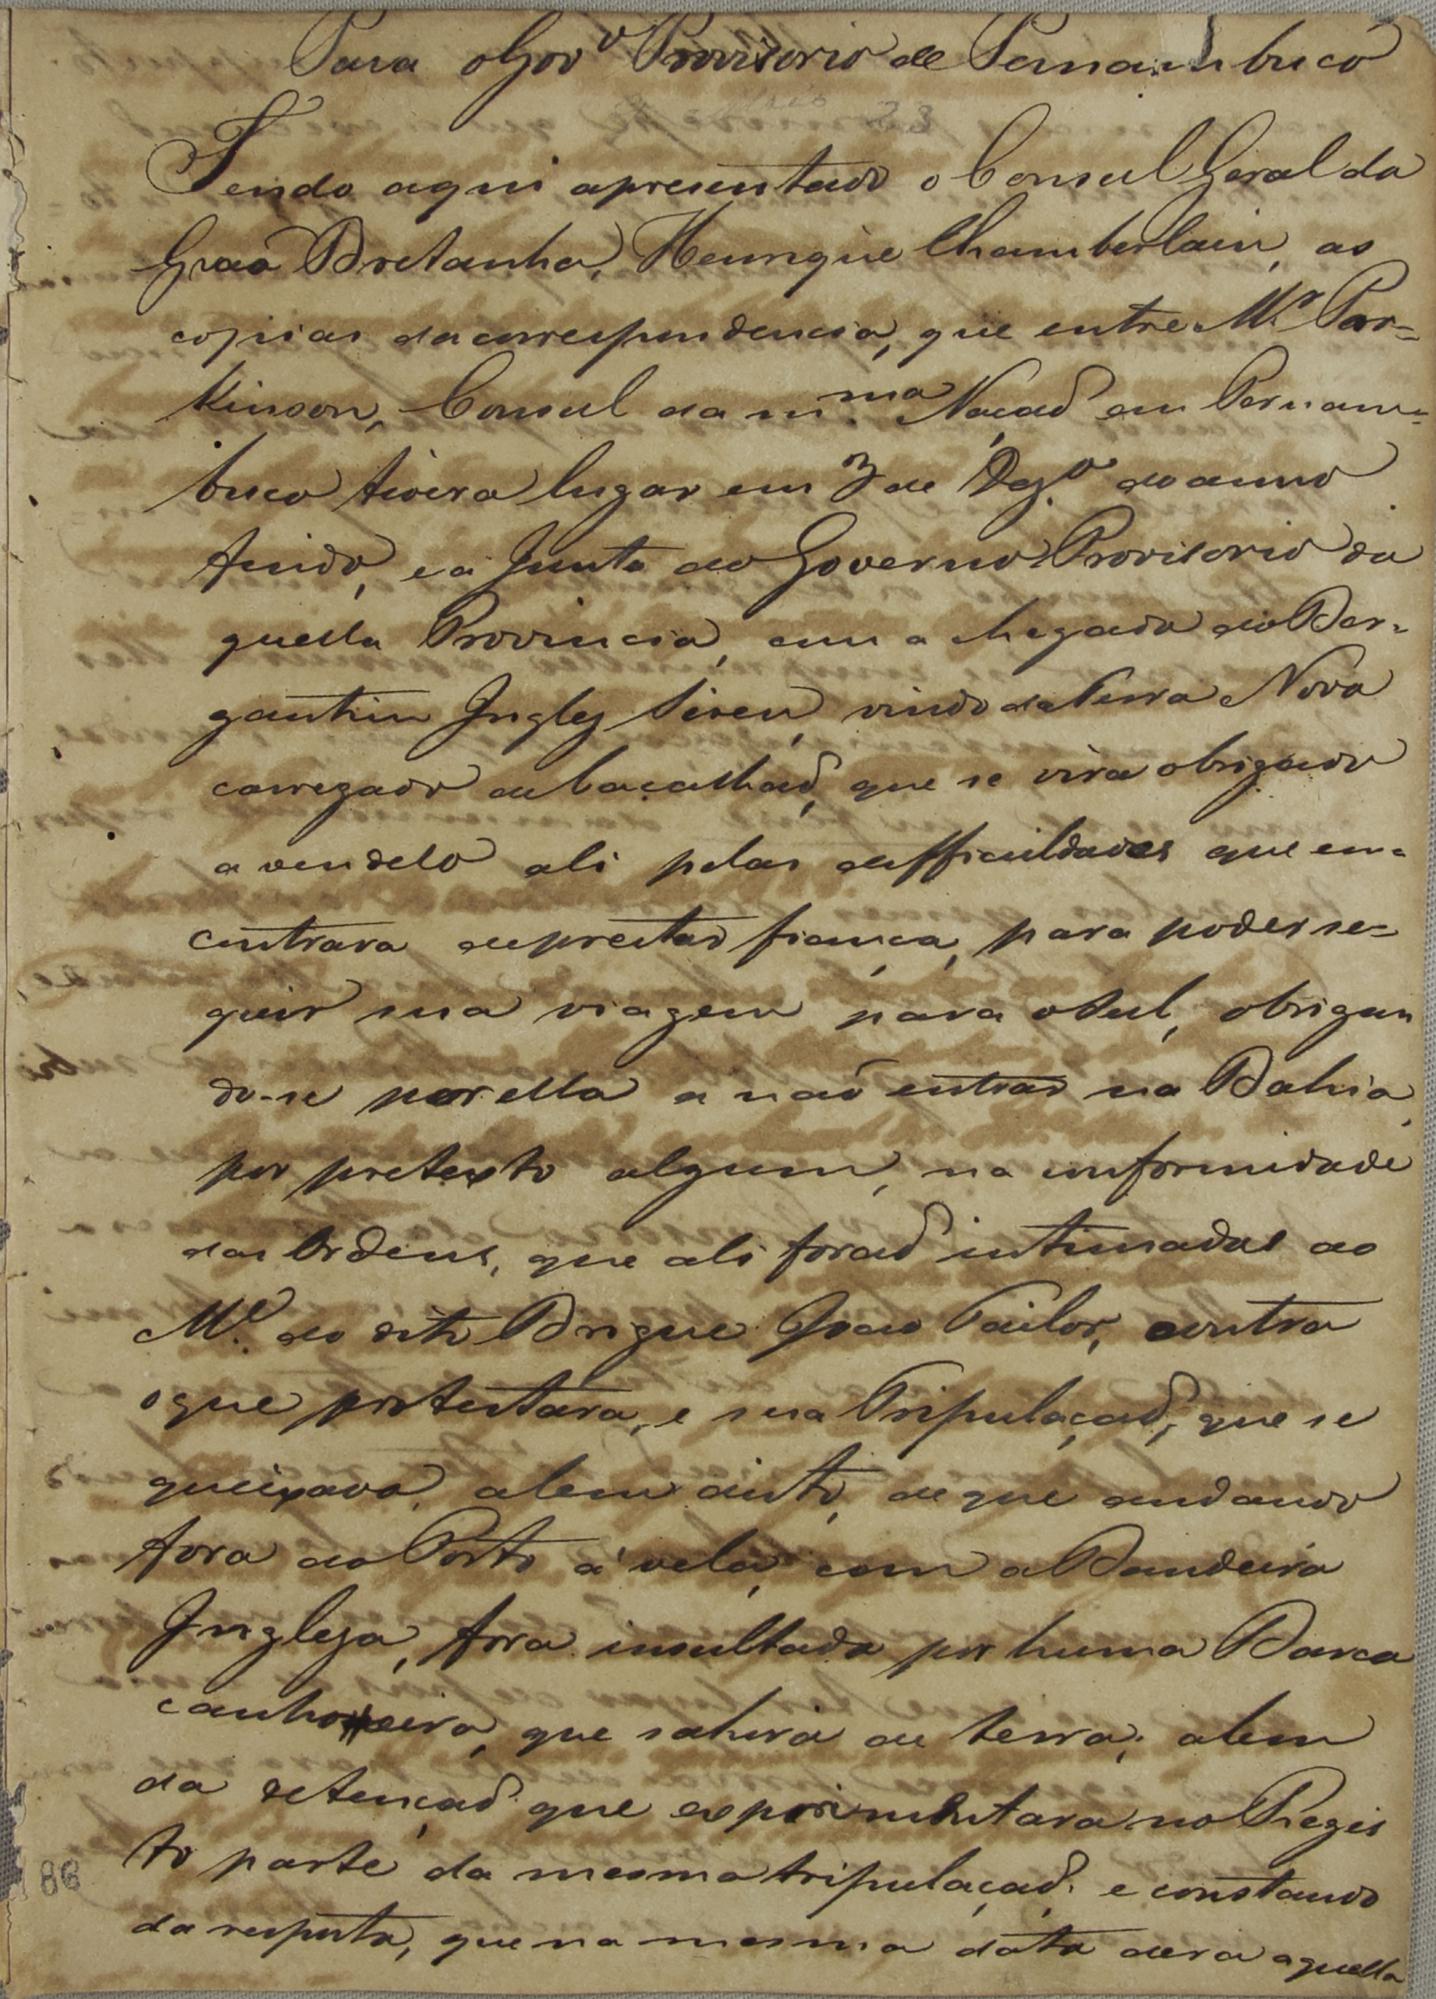 Para o Gov.º Provisorio de Pernambuco
Tendo aqui apresentado o Consul Geral da
Graõ Bretanha, Henrique Chamberlain, as
copias da correspondencia, que entre M.r Par=
kinson, Consul da m.ma Naçaõ em Pernam=
buco tivera lugar em 3 de Dez.º do anno
findo, e a Junta do Governo Provisorio da
quella Provincia, com a chegada do Ber=
gantim Inglez Siren, vindo da Terra Nova
carregado de bacalhaõ, que se vira obrigado
a vendelo ali pelas difficuldades que en=
contrara de prestar fiança, para poder se=
guir sua viagem para o Sul, obrigan
do-se por ella a naõ entrar na Bahia,
por pretexto algum, na conformidade
das Ordens, que ali foraõ intimadas ao
M.e do dito Brigue Joao Tailor, contra
o que protestara, e sua Tripulaçaõ, que se
queixava, alem disto, de que andando
fora do Porto á vela, com a Bandeira
Ingleza, fora insultada por huma Barca
canhoneira, que sahira de terra; alem
da detençaõ que experimentara no Regis
to parte da mesma tripulaçaõ; e constando
da resposta, que na mesma data dera aquella
86